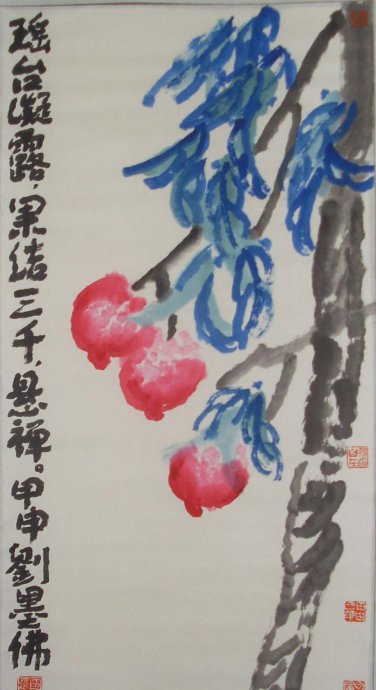 瑶台凝露,果结三千,悬禅。甲申劉墨佛